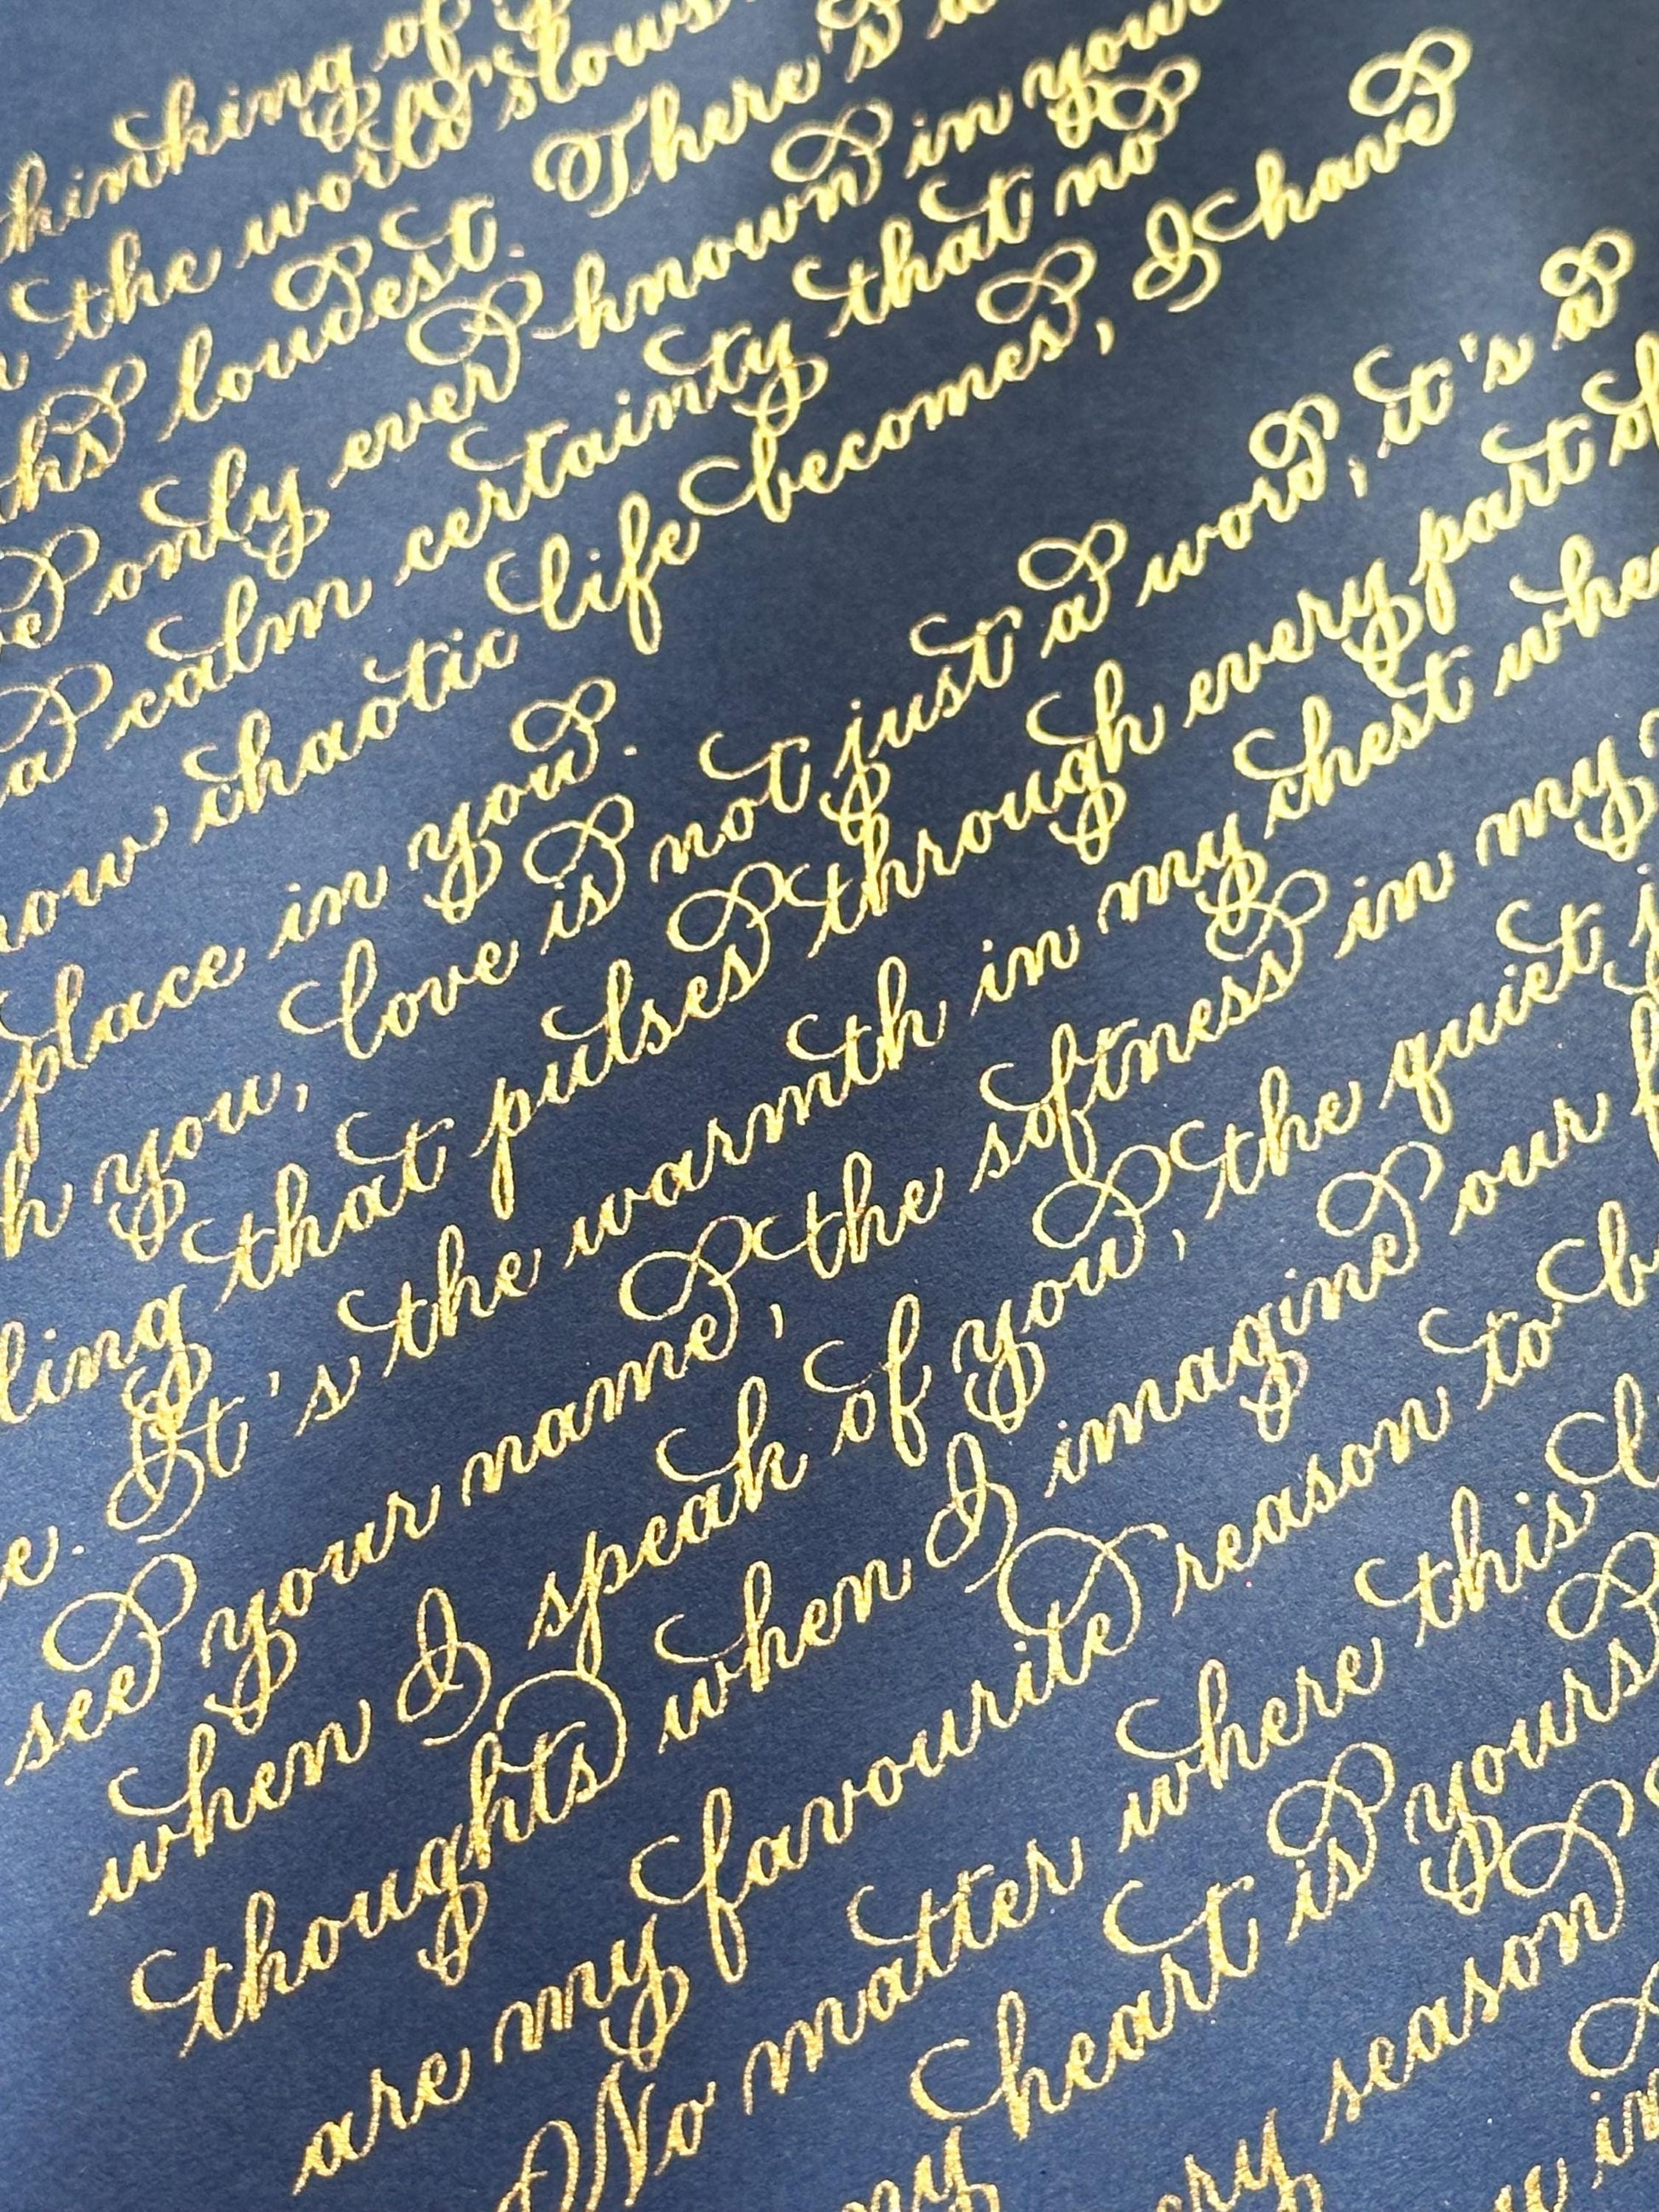 thinking of
the world slows
loudest. There's a
only ever known in your
a calm certainty that no
how chaotic life becomes, I have
place in you.
you, love is not just a word, it's a
that pulses through every part of
e. It's the warmth in my chest when
see your name, the softness in my
when I speak of you, the quiet
thoughts when I imagine our
are my favourite reason to b
No matter where this l
my heart is yours
season
in